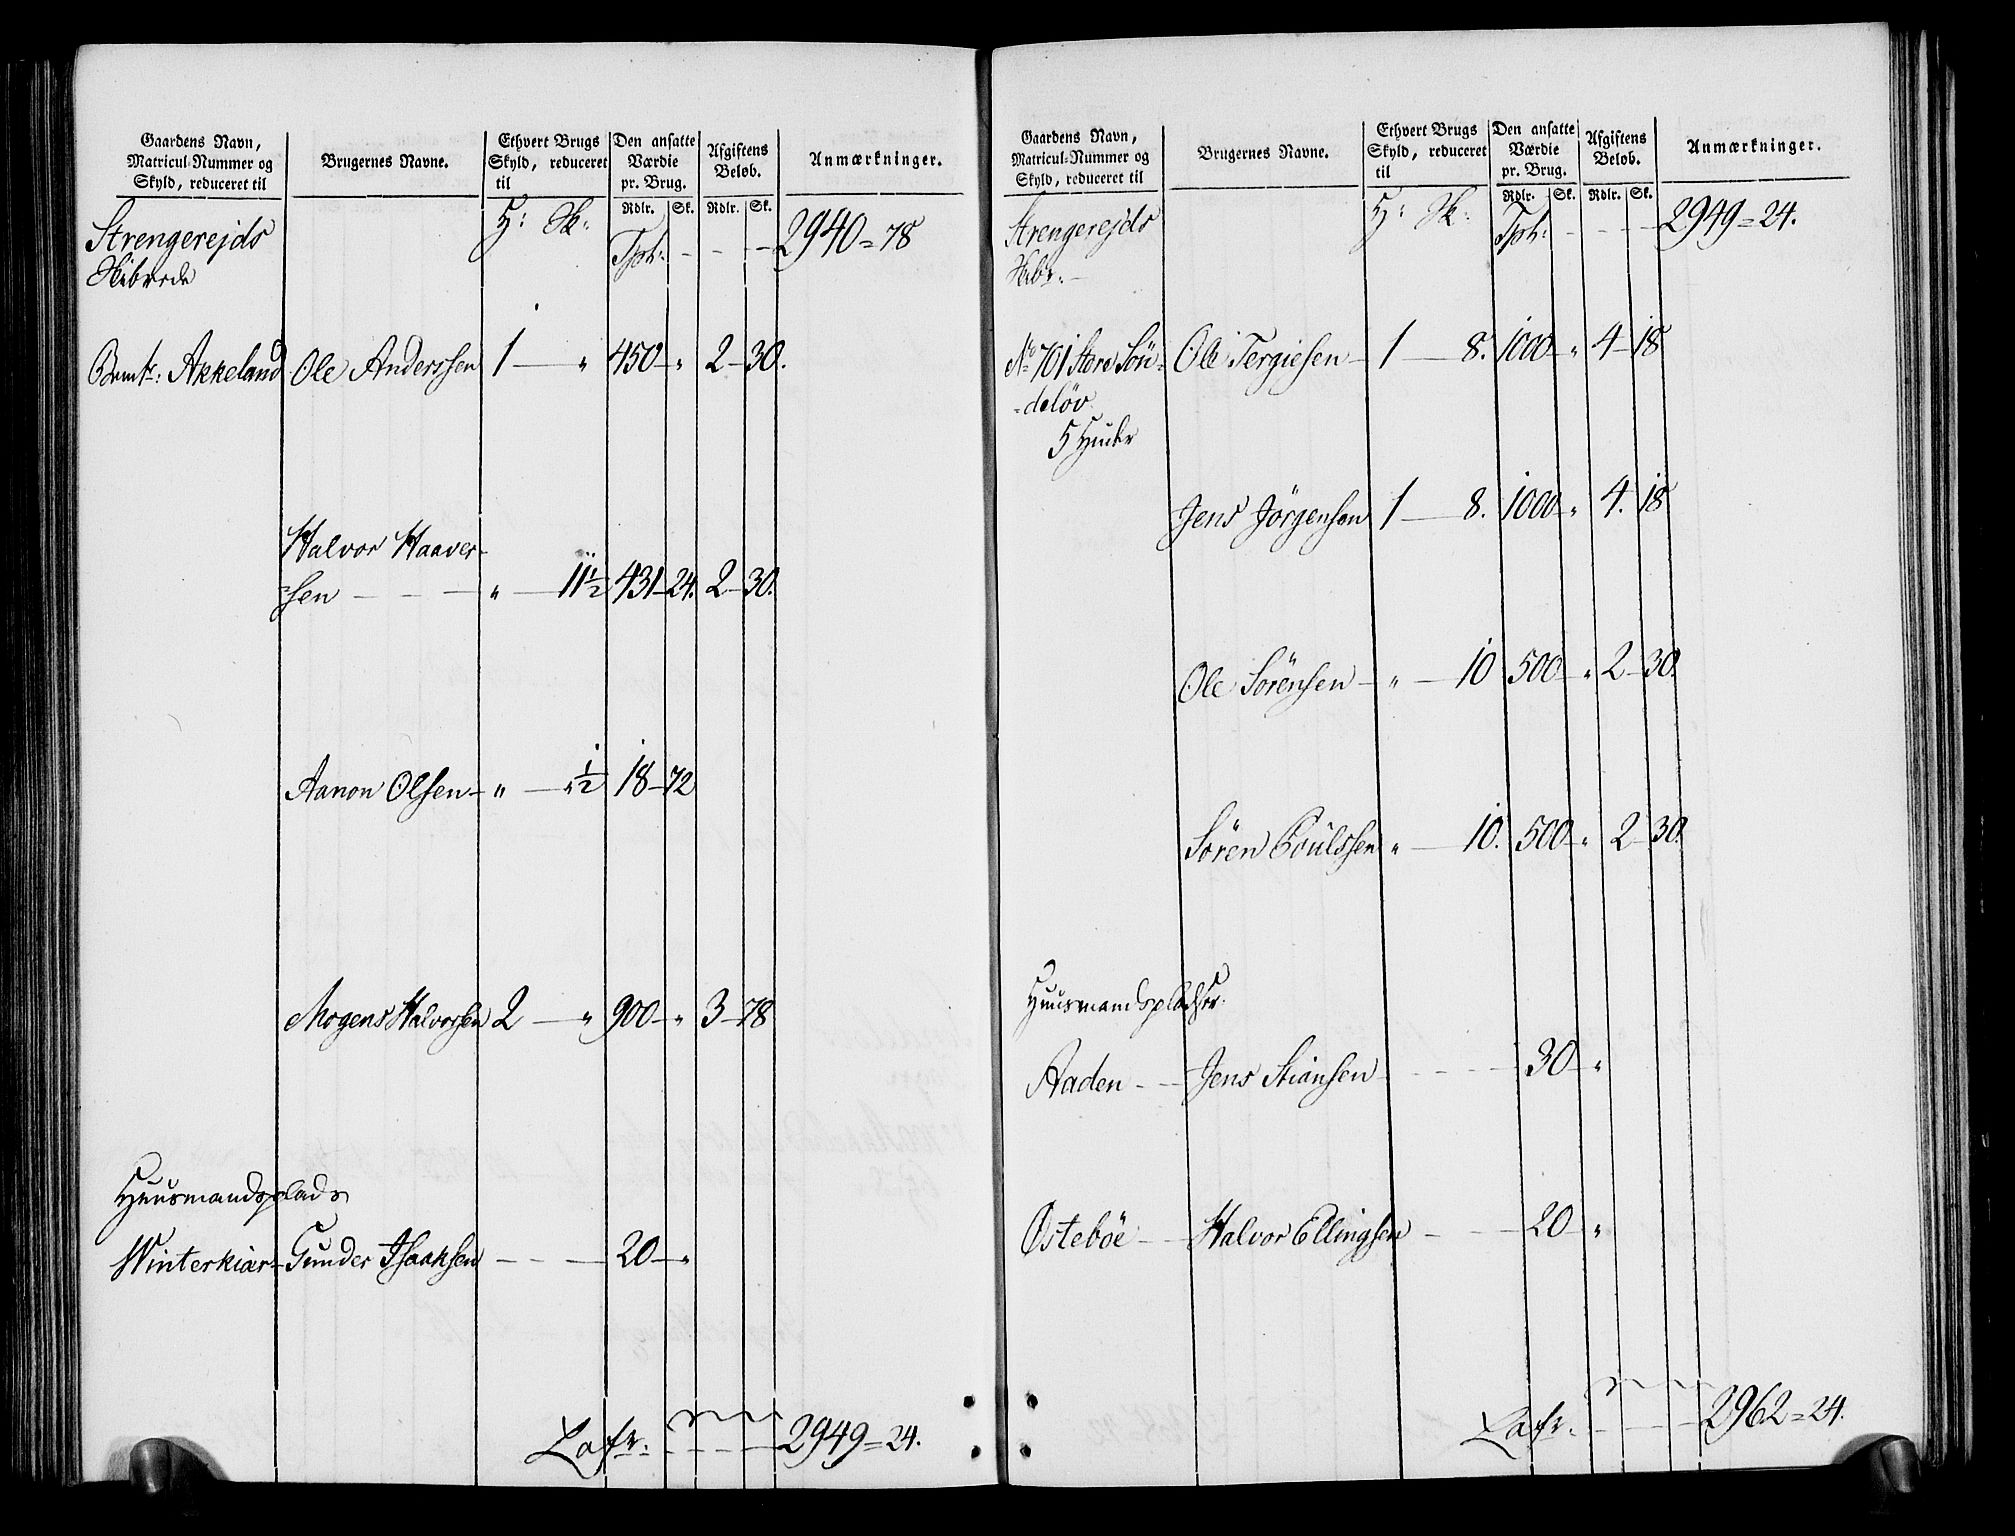 Gaardens Navn,
Matricul-Nummer og
Skyld, reduceret til
Brugernes Navne.
Ethvert Brugs
Skyld, reduceret
til
Den ansatte
Værdie
pr. Brug.
Afgiftens
Beløb.
Anmærkninger.
Rdlr. Sk. Rdlr. Sk.
Strengerejds H: Sk: Tpt: - - - 2940 = 78
Skibrede
Bemte: Akkeland Ole Anderssen 1 — " 450 — " 2 — 30.
Halvor Haaver-
=sen — — — " — 11 1/2 431 — 24. 2 — 30.
Aanon Olsen — " — " 1/2 18 — 72
Mogens Halvorsen 2 — " 900 — " 3 — 78
Huusmandsplads
Winterkiær — Gunder Isaaksen — — — 20 — "
Lafr: - - - 2949 = 24.
Gaardens Navn,
Matricul-Nummer og
Skyld, reduceret til
Brugernes Navne.
Ethvert Brugs
Skyld, reduceret
til
Den ansatte
Værdie
pr. Brug.
Afgiftens
Beløb.
Anmærkninger.
Rdlr. Sk. Rdlr. Sk.
Strengerejds H: Sk: Tpt: - - - 2949 = 24.
Skbr: —
No 701 Store Sön- Ole Tergiesen — 1 — 8. 1000 — " 4 — 18
=deløv
5 Huder
Jens Jörgensen 1 — 8. 1000 — " 4. 18
Ole Sörensen — " — 10 500 — " 2 — 30.
Sören Poulssen " — 10. 500 — " 2 — 30.
Huusmandspladser.
Aaden - — Jens Stiansen - - - - 30 — "
Østebøe — — Halvor Ellingsen - - — 20 — "
Lafr. - - - 2962 = 24.